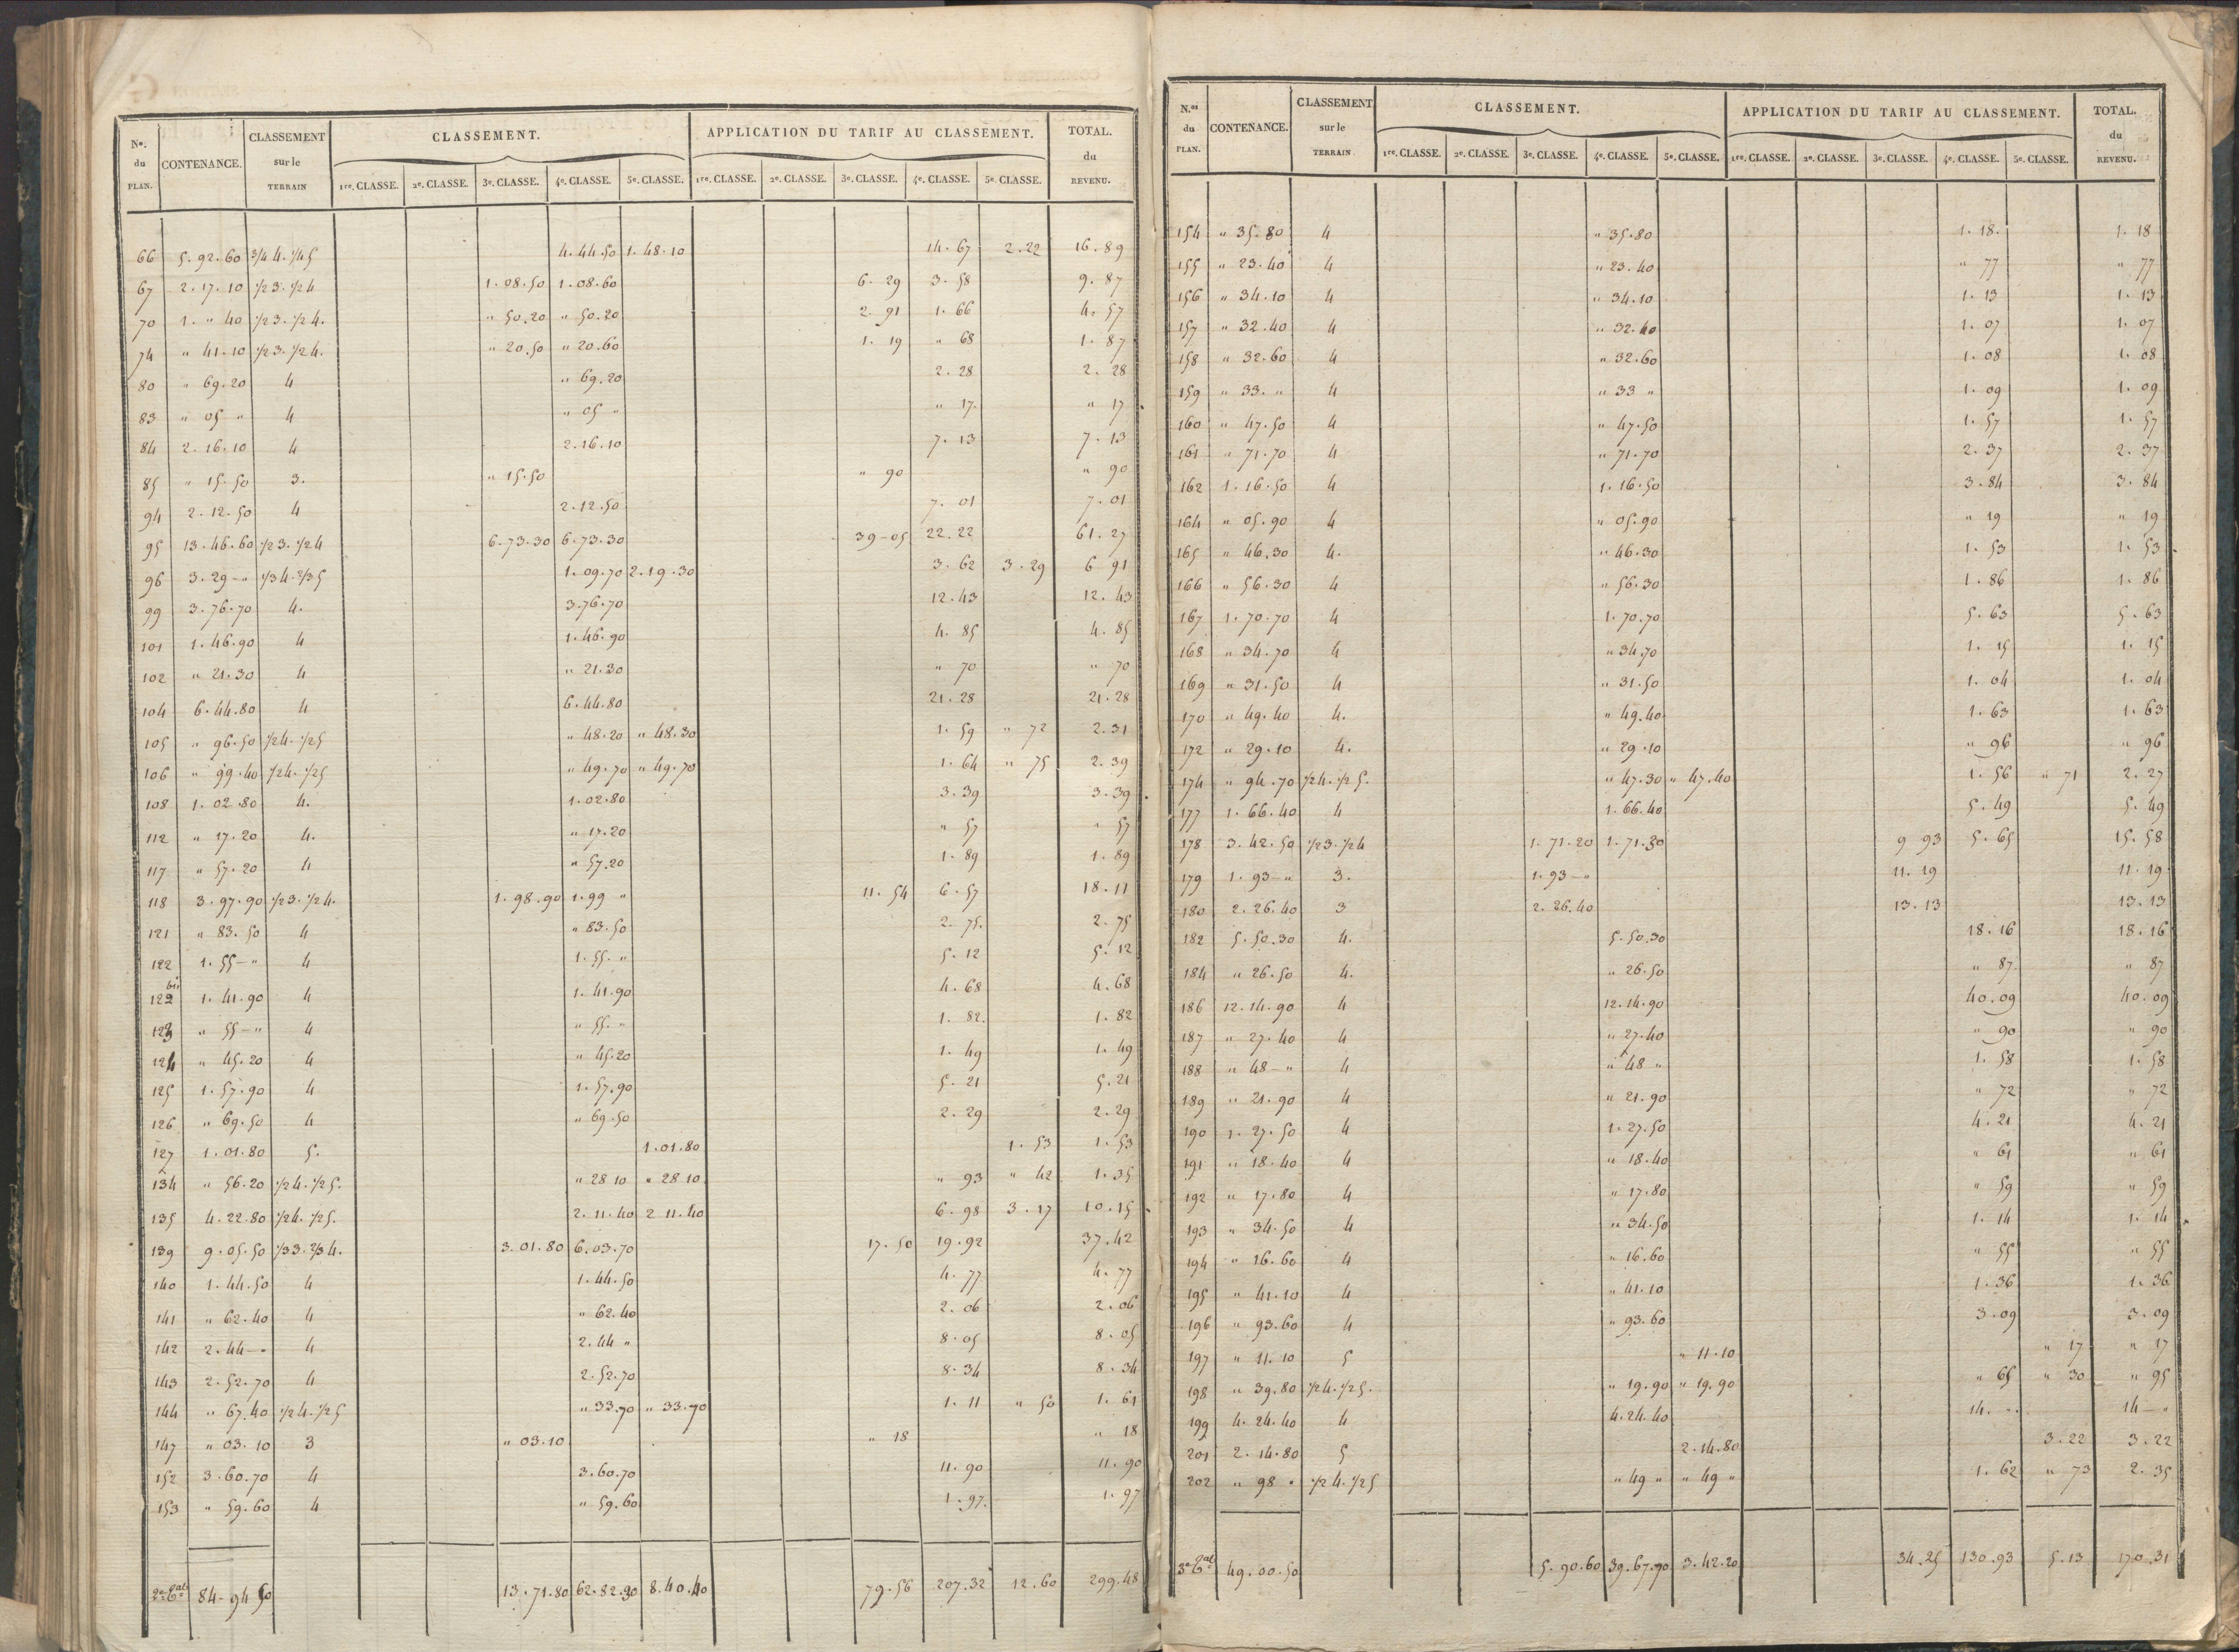 N.os du PLAN. CONTENANCE. CLASSEMENT sur le TERRAIN CLASSEMENT. APPLICATION DU TARIF AU CLASSEMENT. TOTAL. du REVENU.
1re. CLASSE. 2e. CLASSE. 3e. CLASSE. 4e. CLASSE. 5e. CLASSE. 1re. CLASSE. 2e. CLASSE. 3e. CLASSE. 4e. CLASSE. 5e. CLASSE.
66 5.92.60 3/4 4. 1/4 5 4.44.50 1.48.10 14.67 2.22 16.89
67 2.17.10 1/2 3. 1/2 4 1.08.50 1.08.60 6.29 3.58 9.87
70 1. " 40 1/2 3. 1/2 4. " 50.20 " 50.20 2.91 1.66 4.57
74 " 41.10 1/2 3. 1/2 4. " 20.50 " 20.60 1.19 " 68 1.87
80 " 69.20 4 " 69.20 2.28 2.28
83 " 05 " 4 " 05 " " 17. " 17
84 2.16.10 4 2.16.10 7.13 7.13
85 " 15.50 3. " 15.50 " 90 " 90
94 2.12.50 4 2.12.50 7.01 7.01
95 13.46.60 1/2 3. 1/2 4 6.73.30 6.73.30 39-05 22.22 61.27
96 3.29-" 1/3 4. 2/3 5 1.09.70 2.19.30 3.62 3.29 6 91
99 3.76.70 4. 3.76.70 12.43 12.43
101 1.46.90 4 1.46.90 4.85 4.85
102 " 21.30 4 " 21.30 " 70 " 70
104 6.44.80 4 6.44.80 21.28 21.28
105 " 96.50 1/2 4. 1/2 5 " 48.20 " 48.30 1.59 " 72 2.31
106 " 99.40 1/2 4. 1/2 5 " 49.70 " 49.70 1.64 " 75 2.39
108 1.02.80 4. 1.02.80 3.39 3.39
112 " 17.20 4. " 17.20 " 57 " 57
117 " 57.20 4 " 57.20 1.89 1.89
118 3.97.90 1/2 3. 1/2 4. 1.98.90 1.99 " 11.54 6.57 18.11
121 " 83.50 4 " 83.50 2.75. 2.75
122 1.55-" 4 1.55. " 5.12 5.12
122 bis 1.41.90 4 1.41.90 4.68 4.68
123 " 55-" 4 " 55. " 1.82. 1.82
124 " 45.20 4 " 45.20 1.49 1.49
125 1.57.90 4 1.57.90 5.21 5.21
126 " 69.50 4 " 69.50 2.29 2.29
127 1.01.80 5. 1.01.80 1.53 1.53
134 " 56.20 1/2 4. 1/2 5. " 28 10 " 28 10 " 93 " 42 1.35
135 4.22.80 1/2 4. 1/2 5. 2.11.40 2 11.40 6.98 3.17 10.15
139 9.05.50 1/3 3. 2/3 4. 3.01.80 6.03.70 17.50 19.92 37.42
140 1.44.50 4 1.44.50 4.77 4.77
141 " 62.40 4 " 62.40 2.06 2.06
142 2.44-" 4 2.44 " 8.05 8.05
143 2.52.70 4 2.52.70 8.34 8.34
144 " 67.40 1/2 4. 1/2 5 " 33.70 " 33.70 1.11 " 50 1.61
147 " 03.10 3 " 03.10 " 18 " 18
152 3.60.70 4 3.60.70 11.90 11.90
153 " 59.60 4 " 59.60 1.97. 1.97
84-94 50 13.71.80 62.82.30 8.40.40 79.56 207.32 12.60 299.48
N.os du PLAN. CONTENANCE. CLASSEMENT sur le TERRAIN CLASSEMENT. APPLICATION DU TARIF AU CLASSEMENT. TOTAL. du REVENU.
1re. CLASSE. 2e. CLASSE. 3e. CLASSE. 4e. CLASSE. 5e. CLASSE. 1re. CLASSE. 2e. CLASSE. 3e. CLASSE. 4e. CLASSE. 5e. CLASSE.
154 " 35.80 4 " 35.80 1.18. 1.18
155 " 23.40 4 " 23.40 " 77 " 77
156 " 34.10 4 " 34.10 1.13 1.13
157 " 32.40 4 " 32.40 1.07 1.07
158 " 32.60 4 " 32.60 1.08 1.08
159 " 33. " 4 " 33 " 1.09 1.09
160 " 47.50 4 " 47.50 1.57 1.57
161 " 71.70 4 " 71.70 2.37 2.37
162 1.16.50 4 1.16.50 3.84 3.84
164 " 05.90 4 " 05.90 " 19 " 19
165 " 46.30 4. " 46.30 1.53 1.53
166 " 56.30 4 " 56.30 1.86 1.86
167 1.70.70 4 1.70.70 5.63 5.63
168 " 34.70 4 " 34.70 1.15 1.15
169 " 31.50 4 " 31.50 1.04 1.04
170 " 49.40 4. " 49.40 1.63 1.63
172 " 29.10 4. " 29.10 " 96 " 96
174 " 94.70 1/2 4. 1/2 5. " 47.30 " 47.40 1.56 " 71 2.27
177 1.66.40 4 1.66.40 5.49 5.49
178 3.42.50 1/2 3. 1/2 4 1.71.20 1.71.30 9 93 5.65 15.58
179 1.93-" 3. 1.93-" 11.19 11.19
180 2.26.40 3 2.26.40 13.13 13.13
182 5.50.30 4. 5.50.30 18.16 18.16
184 " 26.50 4. " 26.50 " 87. " 87
186 12.14.90 4 12.14.90 40.09 40.09
187 " 27.40 4 " 27.40 " 90 " 90
188 " 48-" 4 " 48 " 1.58 1.58
189 " 21.90 4 " 21.90 " 72 " 72
190 1.27.50 4 1.27.50 4.21 4.21
191 " 18.40 4 " 18.40 " 61 " 61
192 " 17.80 4 " 17.80 " 59 " 59
193 " 34.50 4 " 34.50 1.14 1.14
194 " 16.60 4 " 16.60 " 55 " 55
195 " 41.10 4 " 41.10 1.36 1.36
196 " 93.60 4 " 93.60 3.09 3.09
197 " 11.10 5 " 11.10 " 17 " 17
198 " 39.80 1/2 4. 1/2 5. " 19.90 " 19.90 " 65 " 30 " 95
199 4.24.40 4 4.24.40 14. " 14-"
201 2.14.80 5 2.14.80 3.22 3.22
202 " 98 " 1/2 4. 1/2 5 " 49 " " 49 " 1.62 " 73 2.35
49.00.50 5.90.60 39.67.70 3.42.20 34.25 130.93 5.13 170.31